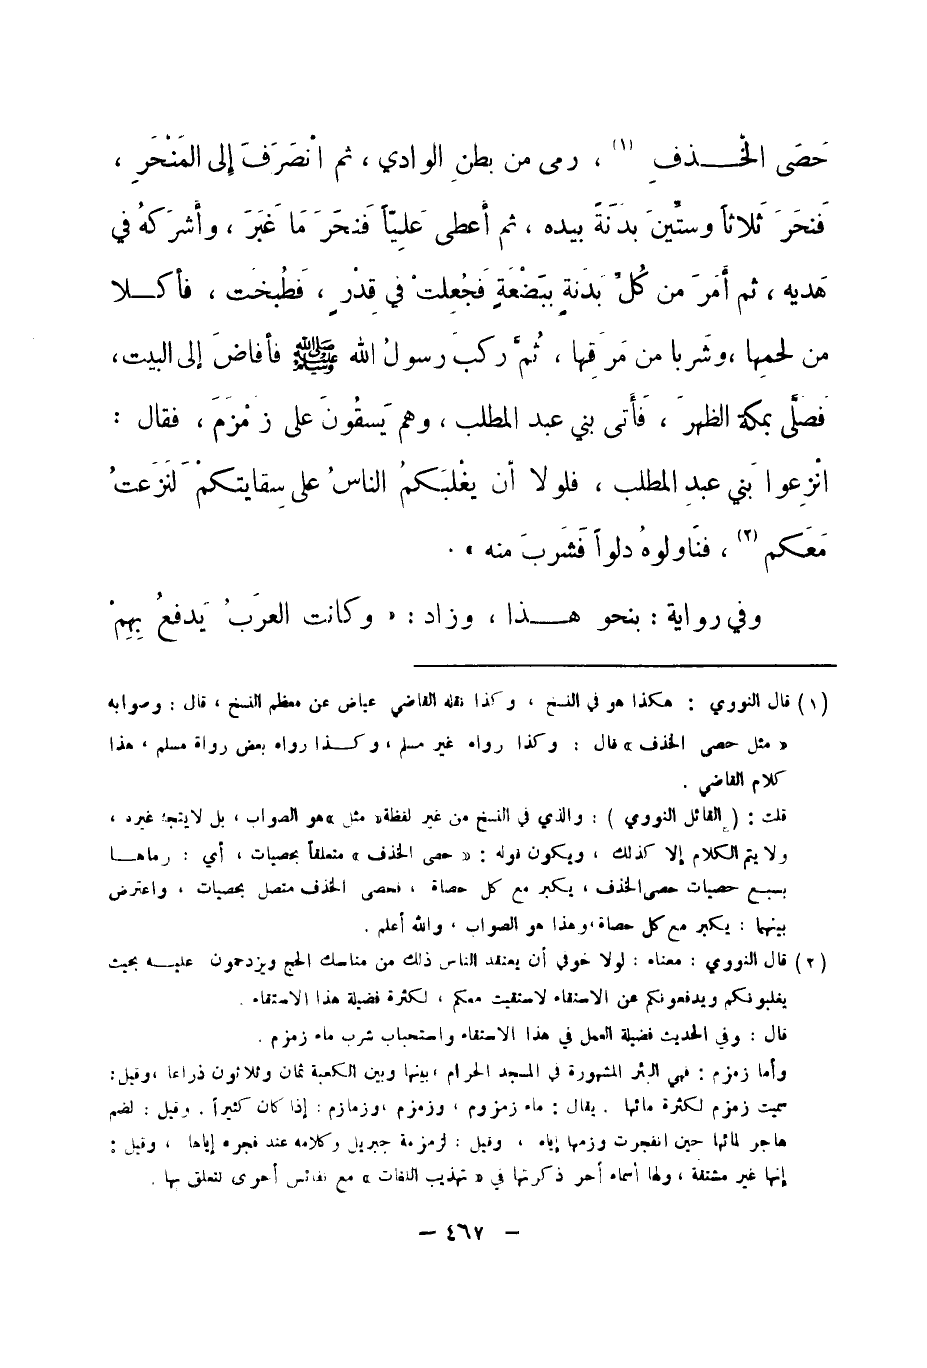 حَصَى الخْـــذفِ (١) ، رمى من بطنِ الوادي ، ثم انْصَرَفَ إلى المَنْحَرِ ،
فَنحَرَ ثَلاثاً وستِّينَ بَدَنَةً بيده ، ثم أعطى عَلِيّاً فَنحَرَ مَا غَبَرَ ، وأشركَهُ في
هَديِه ، ثم أَمَرَ من كُلِّ بَدَنةٍ بِبَضْعَةٍ فَجُعِلتْ في قِدْرٍ ، فَطُبخَت ، فأكـــلا
من لحمِها ،وشَربا من مَرقِها ، ثُمَّ ركبَ رسولُ الله ﷺ فأفاضَ إلى البيت،
فَصلَّى بمكةَ الظهرَ ، فَأَتى بني عبد المطلب ، وهم يَسقُونَ على زمْزَمَ ، فقال :
انْزِعوا بَني عبدِ المطلب ، فلولا أن يغْلبَكمُ الناسُ على سِقايتكمْ لَنَزَعتُ
مَعَكم (٢) ، فنَاولوهُ دلواً فَشَربَ منه » .
وفي رواية : بنحو هـــذا ، وزاد : « وكانت العرَبُ يَدفعُ بِهِمْ
(١) قال النووي : هكذا هو في النسخ ، وكذا نقله القاضي عياض عن معظم النسخ ، قال : وصوابه
« مثل حصى الخذف » قال : وكذا رواه غير مسلم ، وكـــذا رواه بعض رواة مسلم ، هذا
كلام القاضي .
قلت : ( القائل النووي ) : والذي في النسخ من غير لفظة« مثل »هو الصواب ، بل لايتجه غيره ،
ولا يتم الكلام إلا كذلك ، ويكون قوله : « حصى الخذف » متعلقاً بحصيات ، أي : رماهـــا
بسبع حصيات حصى الخذف ، يكبر مع كل حصاة ، فحصى الخذف متصل بحصيات ، واعترض
بينها : يكبر مع كل حصاة،وهذا هو الصواب ، والله أعلم .
(٢) قال النووي : معناه : لولا خوفي أن يعتقد الناس ذلك من مناسك الحج ويزدحمون عليـــه بحيث
يغلبونكم ويدفعونكم عن الاستقاء لاستقيت معكم ، لكثرة فضيلة هذا الاستقاء .
قال : وفي الحديث فضيلة العمل في هذا الاستقاء واستحباب شرب ماء زمزم .
وأما زمزم : فهي البئر المشهورة في المسجد الحرام ،بينها وبين الكعبة ثمان وثلاثون ذراعا ،وقيل:
سميت زمزم لكثرة مائها . يقال : ماء زمزوم ، وزمزم ،وزمازم : إذا كان كثيراً . وقيل : لضم
هاجر لمائها حين انفجرت وزمها إياه ، وقيل : لزمزمة جبريل وكلامه عند فجره إياها ، وقيل :
إنها غير مشتقة ، ولها أسماء أخر ذكرتها في « تهذيب اللغات » مع نفائس أخرى تتعلق بها .
– ٤٦٧ –